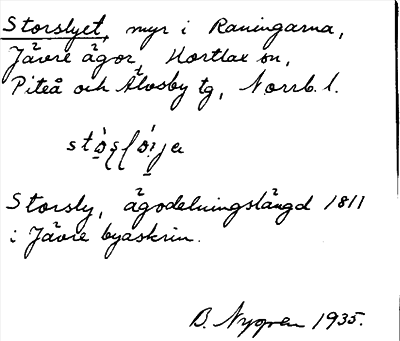 Storslyet, myr i Raningarna,
Jävre ägor, Hortlax sn,
Piteå och Älvsby tg, Norrb. l.
Storsly, ägodelningslängd 1811
i Jävre byaskrin.
B. Nygren 1935.